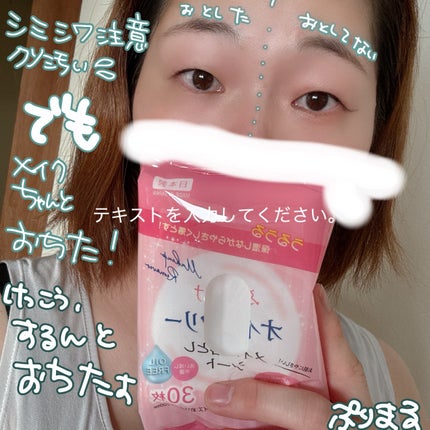 シミシワ注意
クソ汚い
おとした
おとしてない
でも
メイク
ちゃんと
おちた!
けっこう、
するんと
おちたよ
日本製
テキストを入力してください。
うるうる
保湿しながらやさしく落とす!
Makeup
Remover
オイルフリー
メイク落とし
シート
OIL
FREE
30枚
ぷりまる